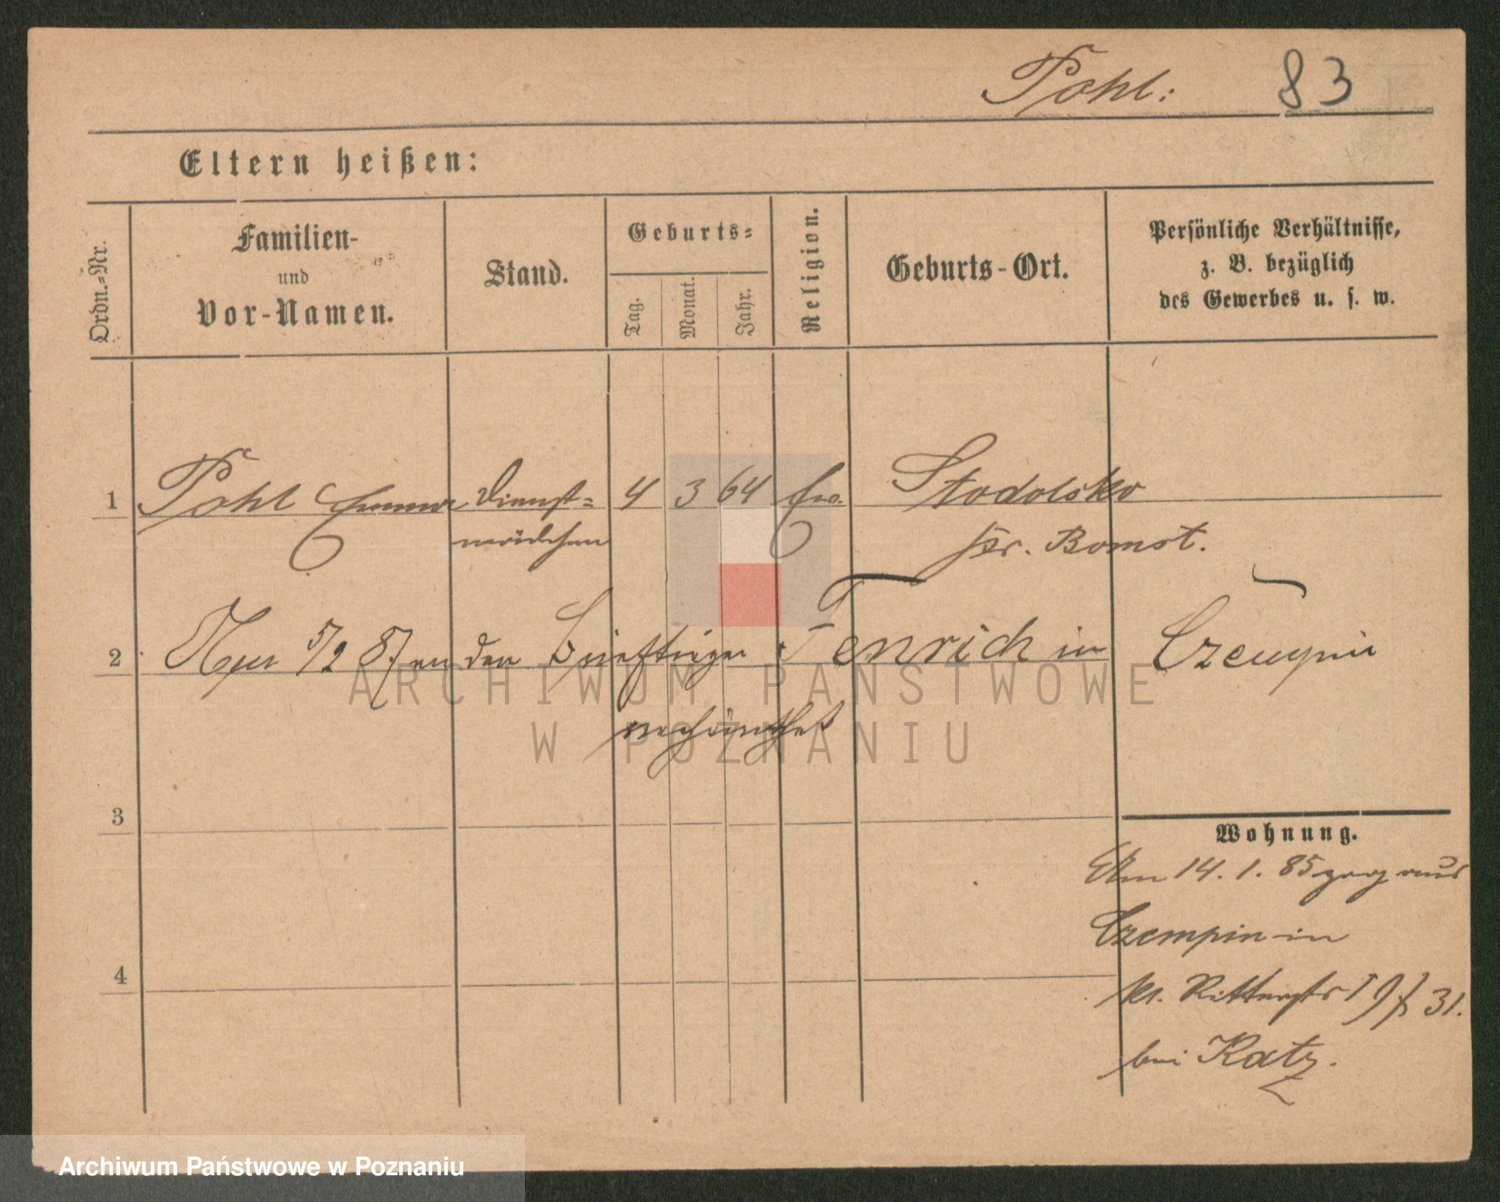 Pohl: 83
Eltern heißen:
Ordn.-Nr.
Familien-
und
Vor-Namen.
Stand.
Geburts-
Tag.
Monat.
Jahr.
Religion.
Geburts-Ort.
Persönliche Verhältnisse,
z. B. bezüglich
des Gewerbes u. s. w.
1 Pohl Emma Dienst= 4 3 64 ev. Stodolsko
mädchen Kr. Bomst.
2 5/2 87 an den Briefträger Fenrich in Czempin
verheirathet
3
Wohnung.
Am 14. 1. 85 zog aus
Czempin in
4
kl. 31.
bei Katz.
ARCHIWUM PAŃSTWOWE
W POZNANIU
Archiwum Państwowe w Poznaniu